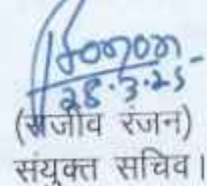 28.3.25
(संजीव रंजन)
संयुक्त सचिव।